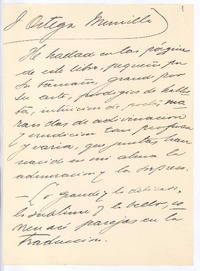 J Ortega Munilla
He hallado en las páginas
de este libro, pequeño por
su tamaño, grande por
su arte, prodigios de habili
dad, intuición de poeta, ma
ravillas de adivinación
y erudición tan profusa
y varia, que juntas han
nacido en mi alma la
admiración y la sorpresa.
Lo grande y lo delicado,
lo sublime y lo bello, co
rren así parejas en la
traducción.